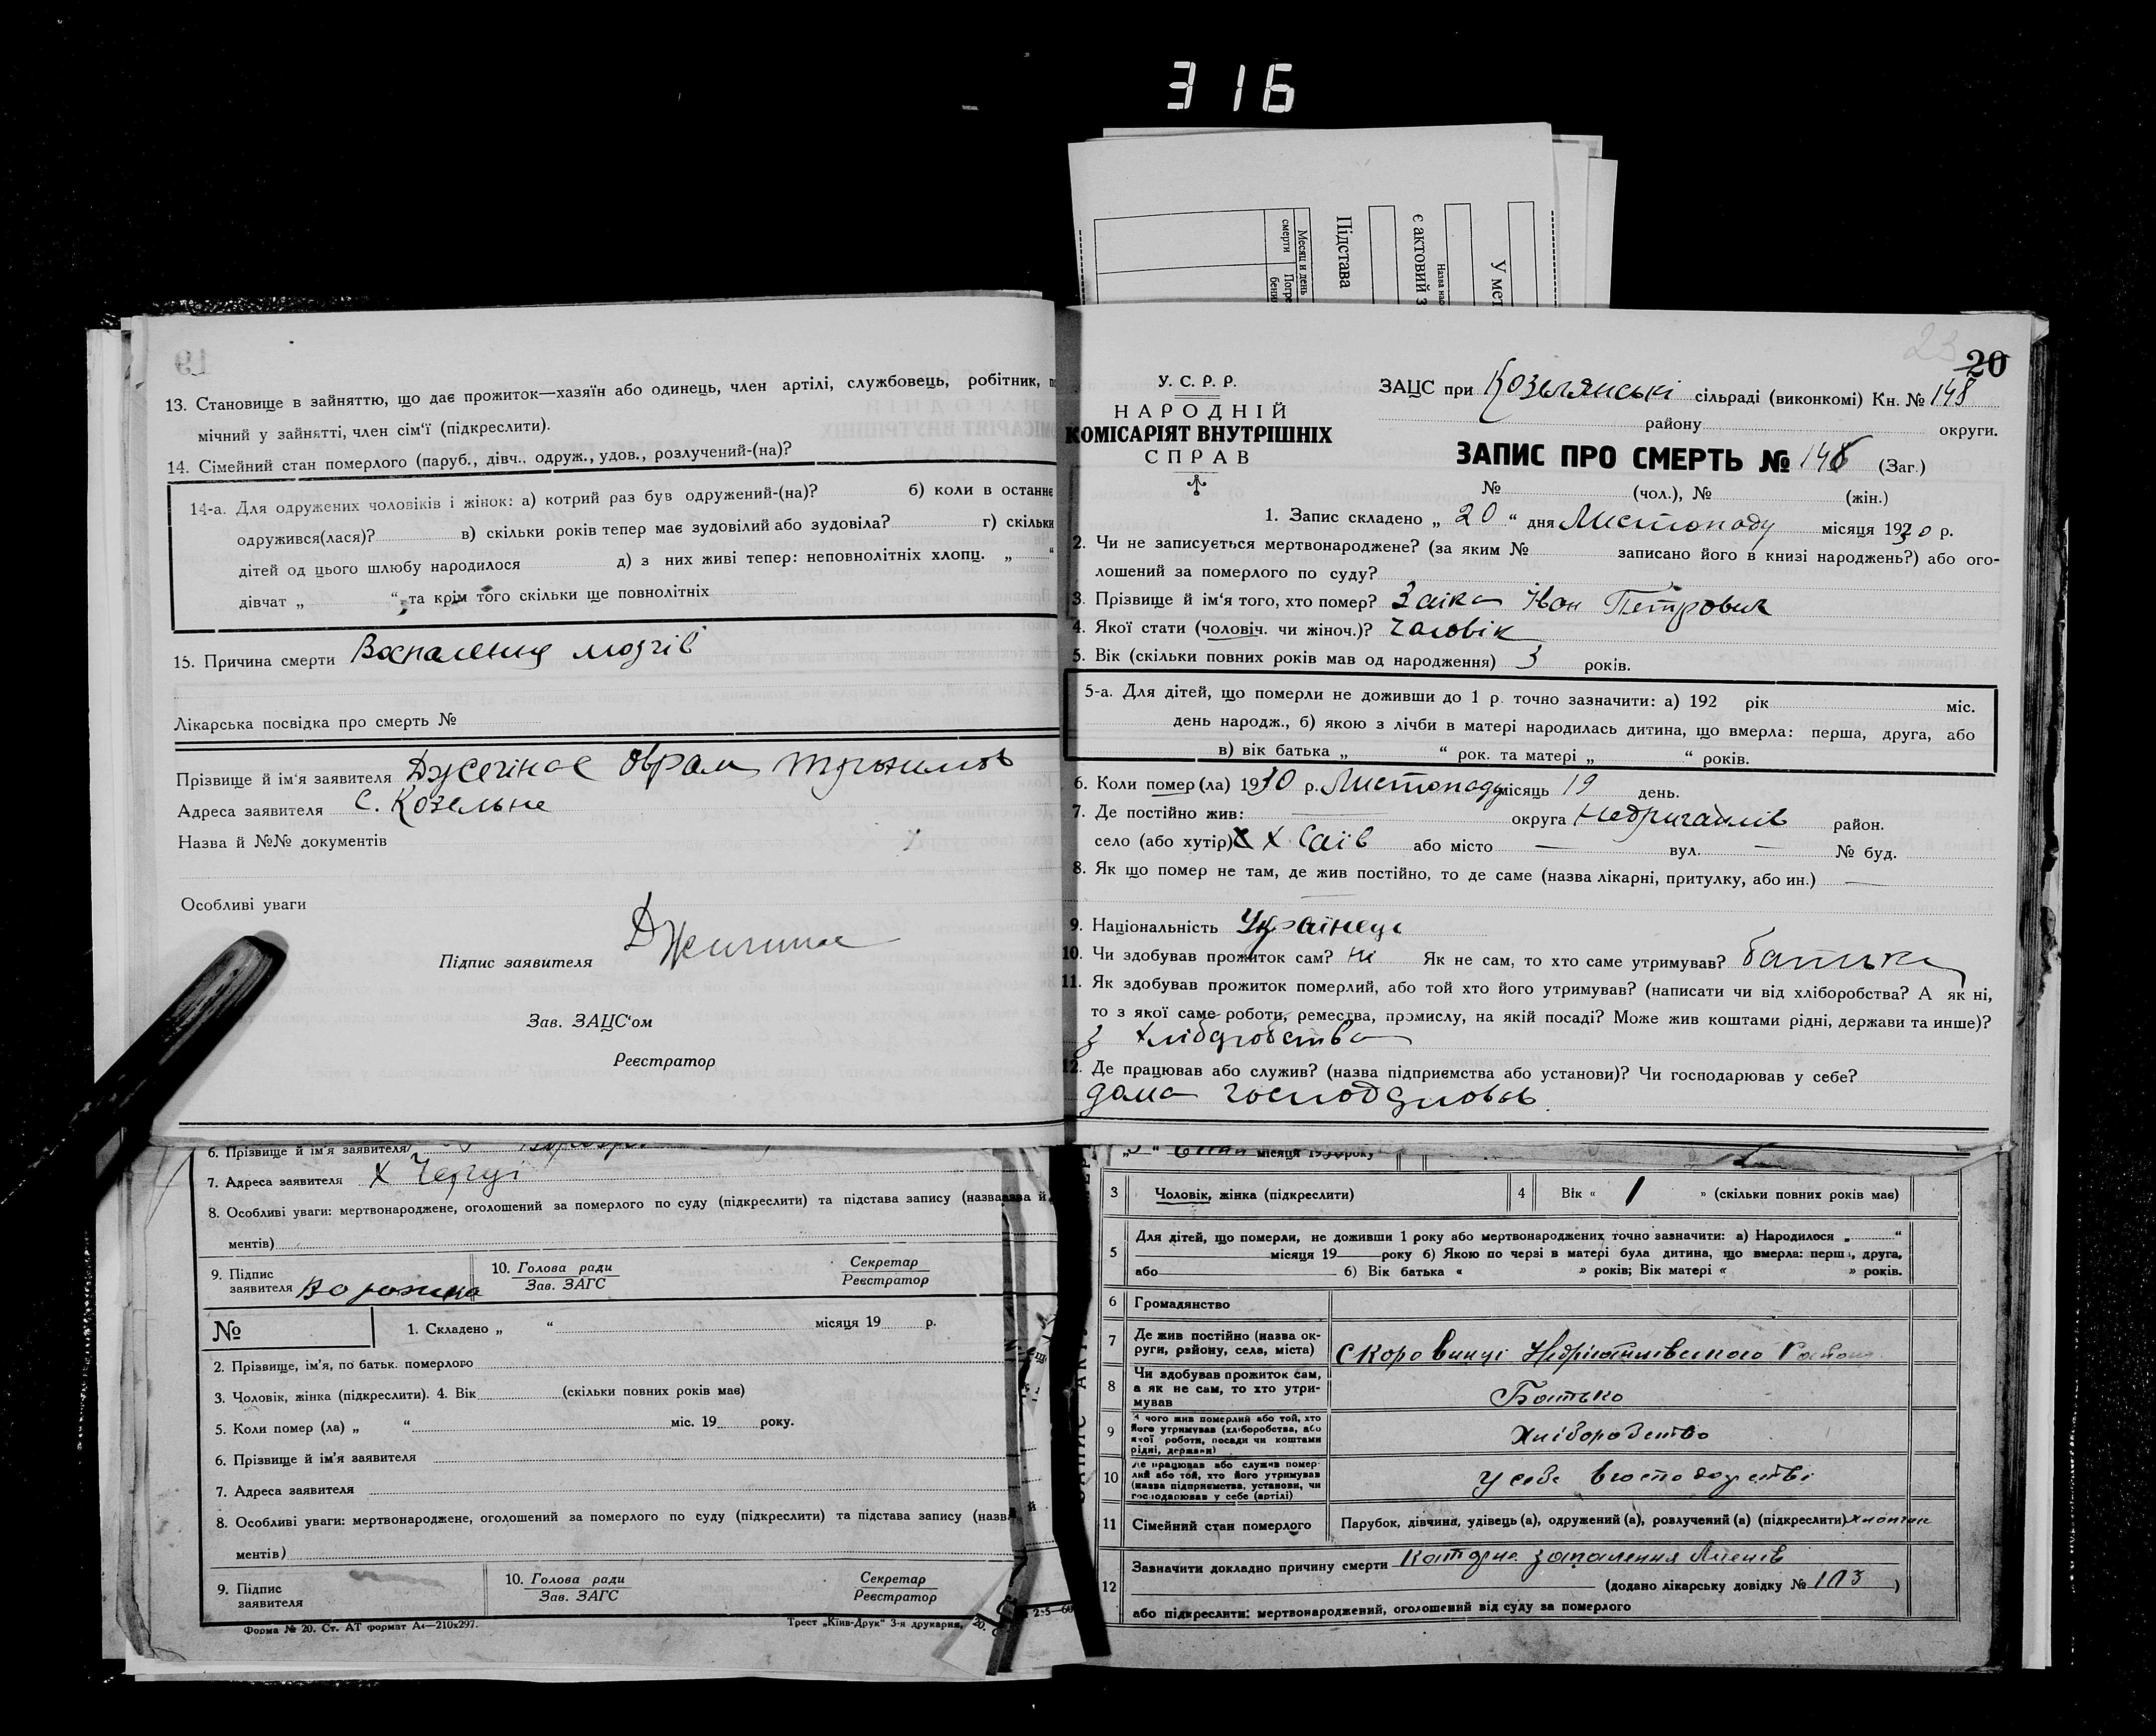 316
Месяц и день смерти
Підстава
є актовий з
У мет
19
13. Становище в зайняттю, що дає прожиток—хазяїн або одинець, член артілі, службовець, робітник,
мічний у зайнятті, член сім'ї (підкреслити).
14. Сімейний стан померлого (паруб., дівч., одруж., удов., розлучений-(на)?
14-а. Для одружених чоловіків і жінок: а) котрий раз був одружений-(на)? б) коли в останнє
одружився(лася)? в) скільки років тепер має зудовілий або зудовіла? г) скільки
дітей од цього шлюбу народилося д) з них живі тепер: неповнолітніх хлопц. „ “
дівчат „ “, та крім того скільки ще повнолітніх
15. Причина смерти Воспаление мозгів
Лікарська посвідка про смерть №
Прізвище й ім'я заявителя Оврам
Адреса заявителя С. Козельне
Назва й №№ документів
Особливі уваги
Підпис заявителя
Зав. ЗАЦС'ом
Реєстратор
23 20
У. С. Р. Р.
НАРОДНІЙ
КОМІСАРІЯТ ВНУТРІШНІХ
СПРАВ
ЗАЦС при Козелянські сільраді (виконкомі) Кн. № 148
району округи.
ЗАПИС ПРО СМЕРТЬ № 148 (Заг.)
№ (чол.), № (жін.)
1. Запис складено „ 20 “ дня Листопаду місяця 1930 р.
2. Чи не записується мертвонароджене? (за яким № записано його в книзі народжень?) або ого-
лошений за померлого по суду?
3. Прізвище й ім'я того, хто помер? Заіка Іван Петрович
4. Якої стати (чоловіч. чи жіноч.)? чоловік
5. Вік (скільки повних років мав од народження) 3 років.
5-а. Для дітей, що померли не доживши до 1 р. точно зазначити: а) 192 рік міс.
день народж., б) якою з лічби в матері народилась дитина, що вмерла: перша, друга, або
в) вік батька „ “ рок. та матері „ “ років.
6. Коли помер (ла) 1930 р. Листопаду місяць 19 день.
7. Де постійно жив: — округа Недригайлів район.
село (або хутір) х Саїв або місто — вул. — № буд.
8. Як що помер не там, де жив постійно, то де саме (назва лікарні, притулку, або ин.) —
9. Національність Українець
10. Чи здобував прожиток сам? ні Як не сам, то хто саме утримував? батько
11. Як здобував прожиток померлий, або той хто його утримував? (написати чи від хліборобства? А як ні,
то з якої саме роботи, ремества, промислу, на якій посаді? Може жив коштами рідні, держави та инше)?
з хліборобства
12. Де працював або служив? (назва підприємства або установи)? Чи господарював у себе?
дома господарював
6. Прізвище й ім'я заявителя
7. Адреса заявителя х Черці
8. Особливі уваги: мертвонароджене, оголошений за померлого по суду (підкреслити) та підстава запису (назва й
ментів)
9. Підпис заявителя
10. Голова ради
Зав. ЗАГС
Секретар
Реєстратор
№
1. Складено „ “ місяця 19 р.
2. Прізвище, ім'я, по батьк. померлого
3. Чоловік, жінка (підкреслити). 4. Вік (скільки повних років має)
5. Коли помер (ла) „ “ міс. 19 року.
6. Прізвище й ім'я заявителя
7. Адреса заявителя
8. Особливі уваги: мертвонароджене, оголошений за померлого по суду (підкреслити) та підстава запису (назв
ментів)
9. Підпис заявителя
10. Голова ради
Зав. ЗАГС
Секретар
Реєстратор
Форма № 20. Ст. АТ формат А4—210х297.
Трест „Київ-Друк“ 3-я друкарня,
місяця 1930 року
3 Чоловік, жінка (підкреслити) 4 Вік « 1 » (скільки повних років має)
5 Для дітей, що померли, не доживши 1 року або мертвонароджених точно зазначити: а) Народилося „ “
місяця 19 року б) Якою по черзі в матері була дитина, що вмерла: перша, друга,
або б) Вік батька « » років; Вік матері « » років.
6 Громадянство
7 Де жив постійно (назва ок-
руги, району, села, міста) Коровинці Недригайлівського Району
8 Чи здобував прожиток сам,
а як не сам, то хто утри-
мував Батько
9 З чого жив померлий або той, хто
його утримував (хліборобства, або
якої роботи, посади чи коштами
рідні, держави) Хліборобство
10 Де працював або служив помер-
лий або той, хто його утримував
(назва підприємства, установи, чи
господарював у себе (артілі) У себе в господарстві
11 Сімейний стан померлого Парубок, дівчина, удівець(а), одружений(а), розлучений(а) (підкреслити)
12 Зазначити докладно причину смерти запалення
(додано лікарську довідку № 103 )
або підкреслити: мертвонароджений, оголошений від суду за померлого